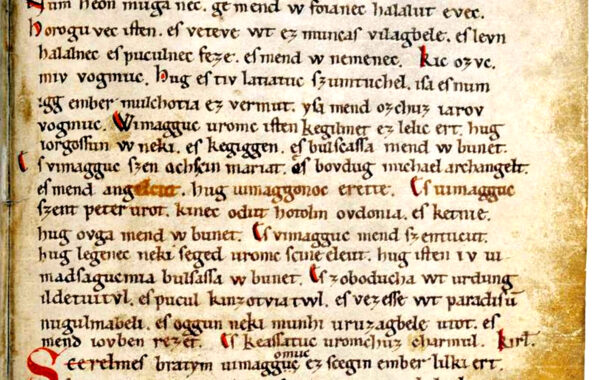 Num heon muga nec. ge mend w foianec halalut evec.
horogu vec isten. es veteve wt ez muncas vilagbele. es levn
halalnec es puculnec feze. es mend w nemenec. Kic ozvc.
miv vogmuc. hug es tiv latiatuc szumtuchel. isa es num
igg ember mulchotia ez vermut. ysa mend ozchuz iarov
vogmuc. Wimagguc uromc isten kegilmet ez lelic ert. hug
iorgossun w neki. es kegiggen. es bulsassa mend w bunet.
Es vimagguc szen achscin mariat. es bovdug michael archangelt.
es mend angelcut. hug uimaggonoc erette. Es uimagguc
szent peter urot. kinec odut hotolm ovdonia. es ketnie.
hug ovga mend w bunet. Es vimagguc mend szentucut.
hug legenec neki seged uromc scine eleut. hug isten iv ui
madsagucmia bulsassa w bunet. Es zoboducha wt urdung
ildetuitul. es pucul kinzotviatwl. es vezesse wt paradisū
nugulmabeli. es oggun neki munhi uruzagbele utot. es
mend iovben rezet. Es keassatuc uromchuz charmul. kirl.
omuc
Scerelmes bratym uimagguc ez scegin ember lilki ert.